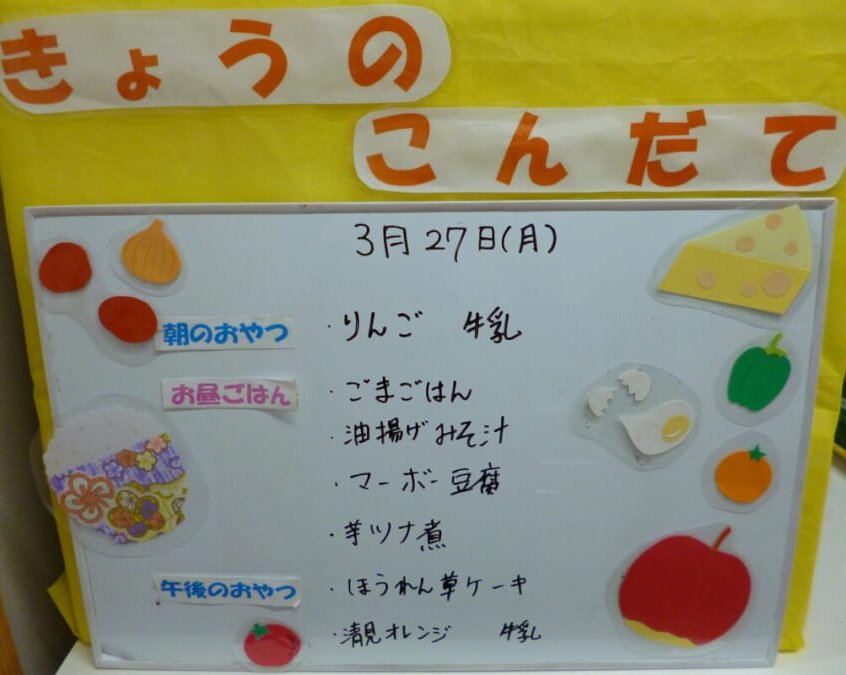 きょうの
こんだて
3月27日(月)
朝のおやつ ・りんご 牛乳
お昼ごはん ・ごまごはん
・油揚げみそ汁
・マーボー豆腐
・芋ツナ煮
午後のおやつ ・ほうれん草ケーキ
・清見オレンジ 牛乳